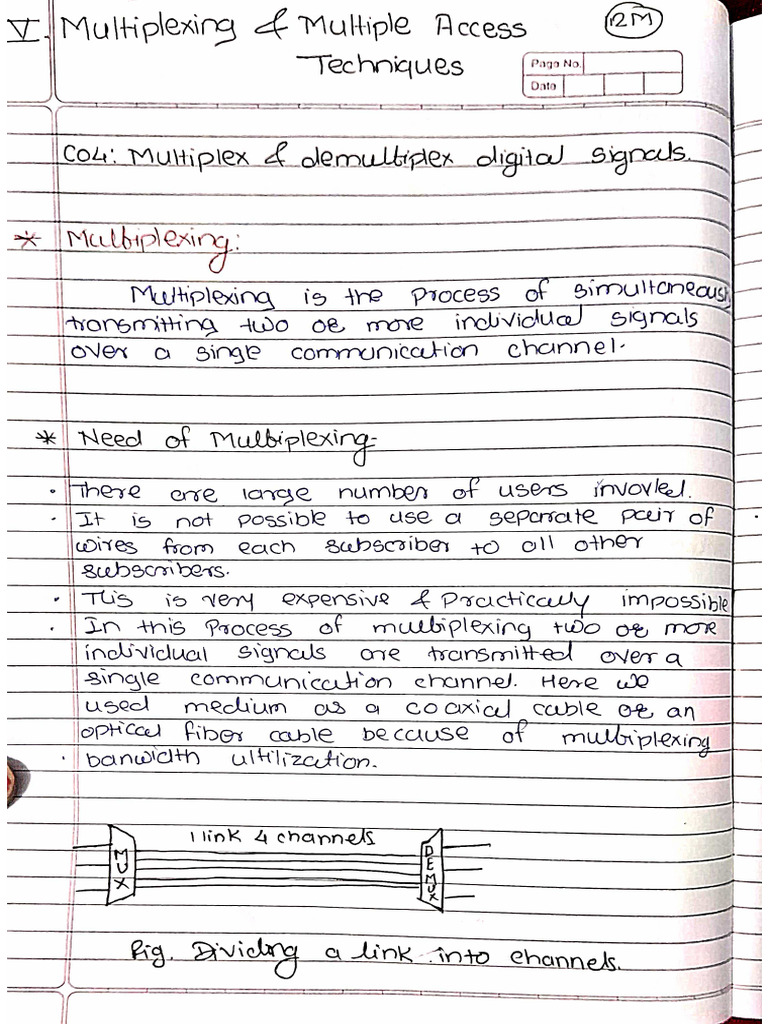 V. Multiplexing & Multiple Access
12M
Techniques
Page No.
Date
CO4: Multiplex & demultiplex digital signals.
* Multiplexing:
Multiplexing is the process of simultaneous
transmitting two or more individual signals
over a single communication channel.
* Need of Multiplexing-
• There are large number of users invovled.
• It is not possible to use a separate pair of
wires from each subscriber to all other
subscribers.
• This is very expensive & Practically impossible
• In this Process of multiplexing two or more
individual signals are transmitted over a
single communication channel. Here we
used medium as a coaxial cable or an
optical fiber cable because of multiplexing
• banwidth ultilization.
1 link 4 channels
MUX
DEMUX
Fig. Dividing a link into channels.